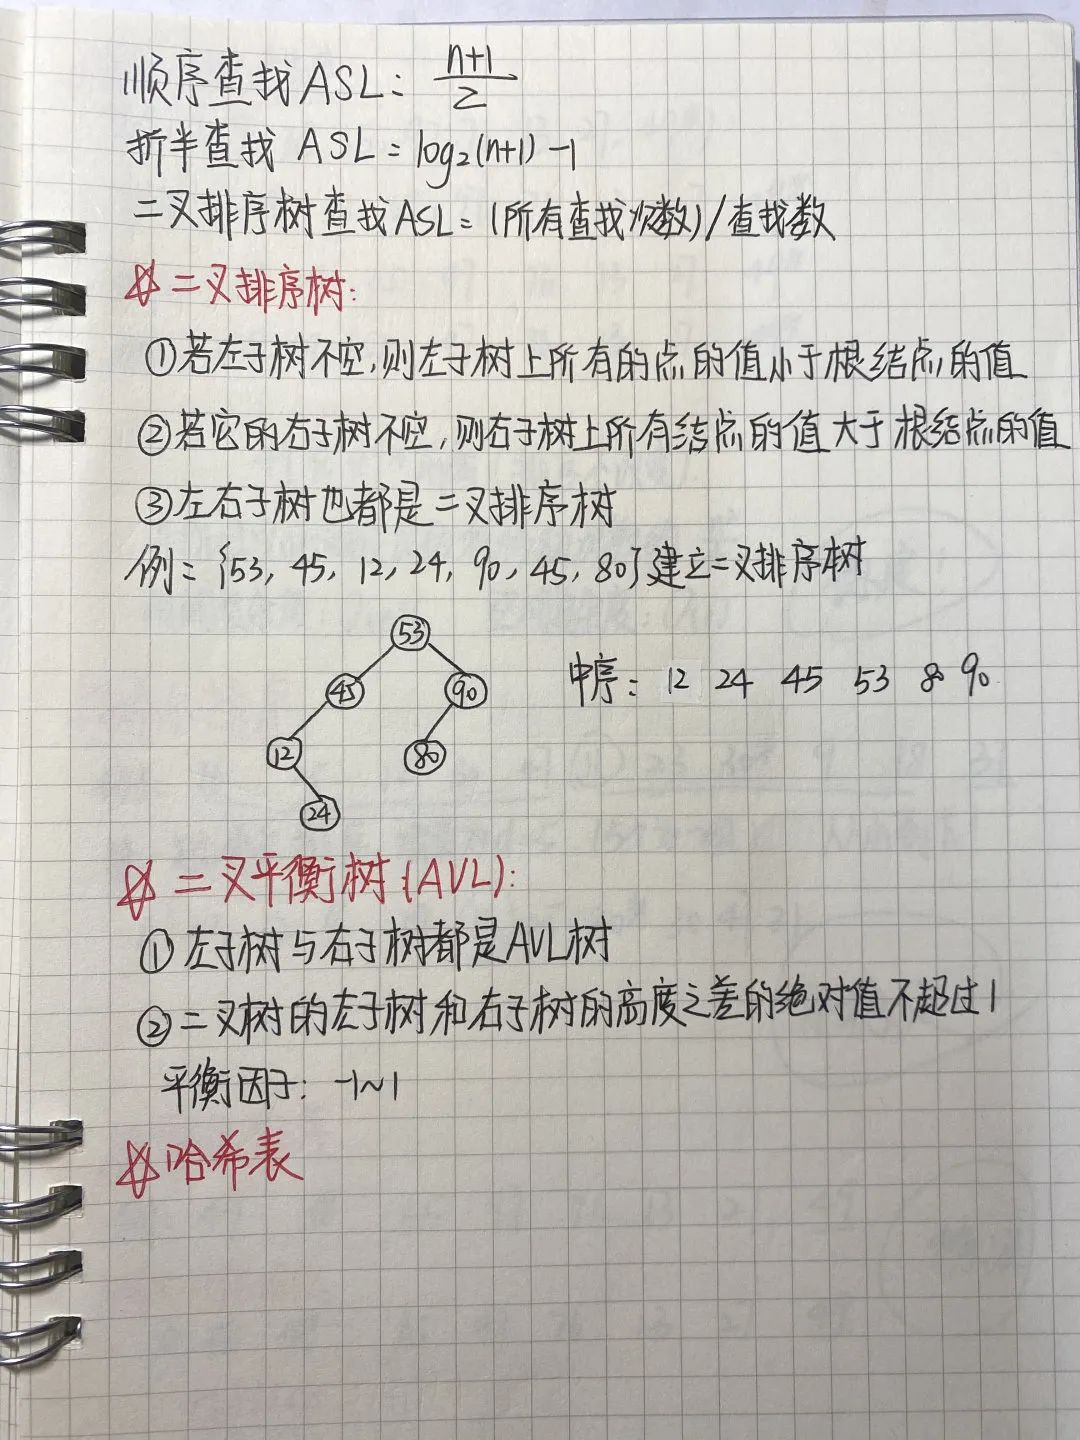 顺序查找ASL: n+1/2
折半查找 ASL = log₂(n+1) -1
二叉排序树查找ASL = (所有查找次数)/查找数
☆二叉排序树:
①若左子树不空,则左子树上所有的点的值小于根结点的值
②若它的右子树不空,则右子树上所有结点的值大于根结点的值
③左右子树也都是二叉排序树
例: {53, 45, 12, 24, 90, 45, 80}建立二叉排序树
53
中序: 12 24 45 53 80 90
45 90
12 80
24
☆ 二叉平衡树(AVL):
①左子树与右子树都是AVL树
②二叉树的左子树和右子树的高度之差的绝对值不超过1
平衡因子: -1~1
☆哈希表